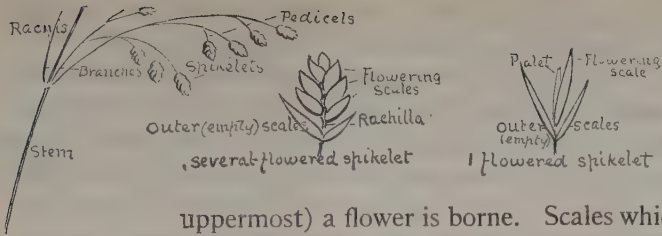 Rachis
Pedicels
Branches
Spikelets
Stem
Flowering
scales
Outer (empty) scales
Rachilla
several-flowered spikelet
Palet
Flowering
scale
outer
(empty)
scales
1 flowered spikelet
uppermost) a flower is borne. Scales whic